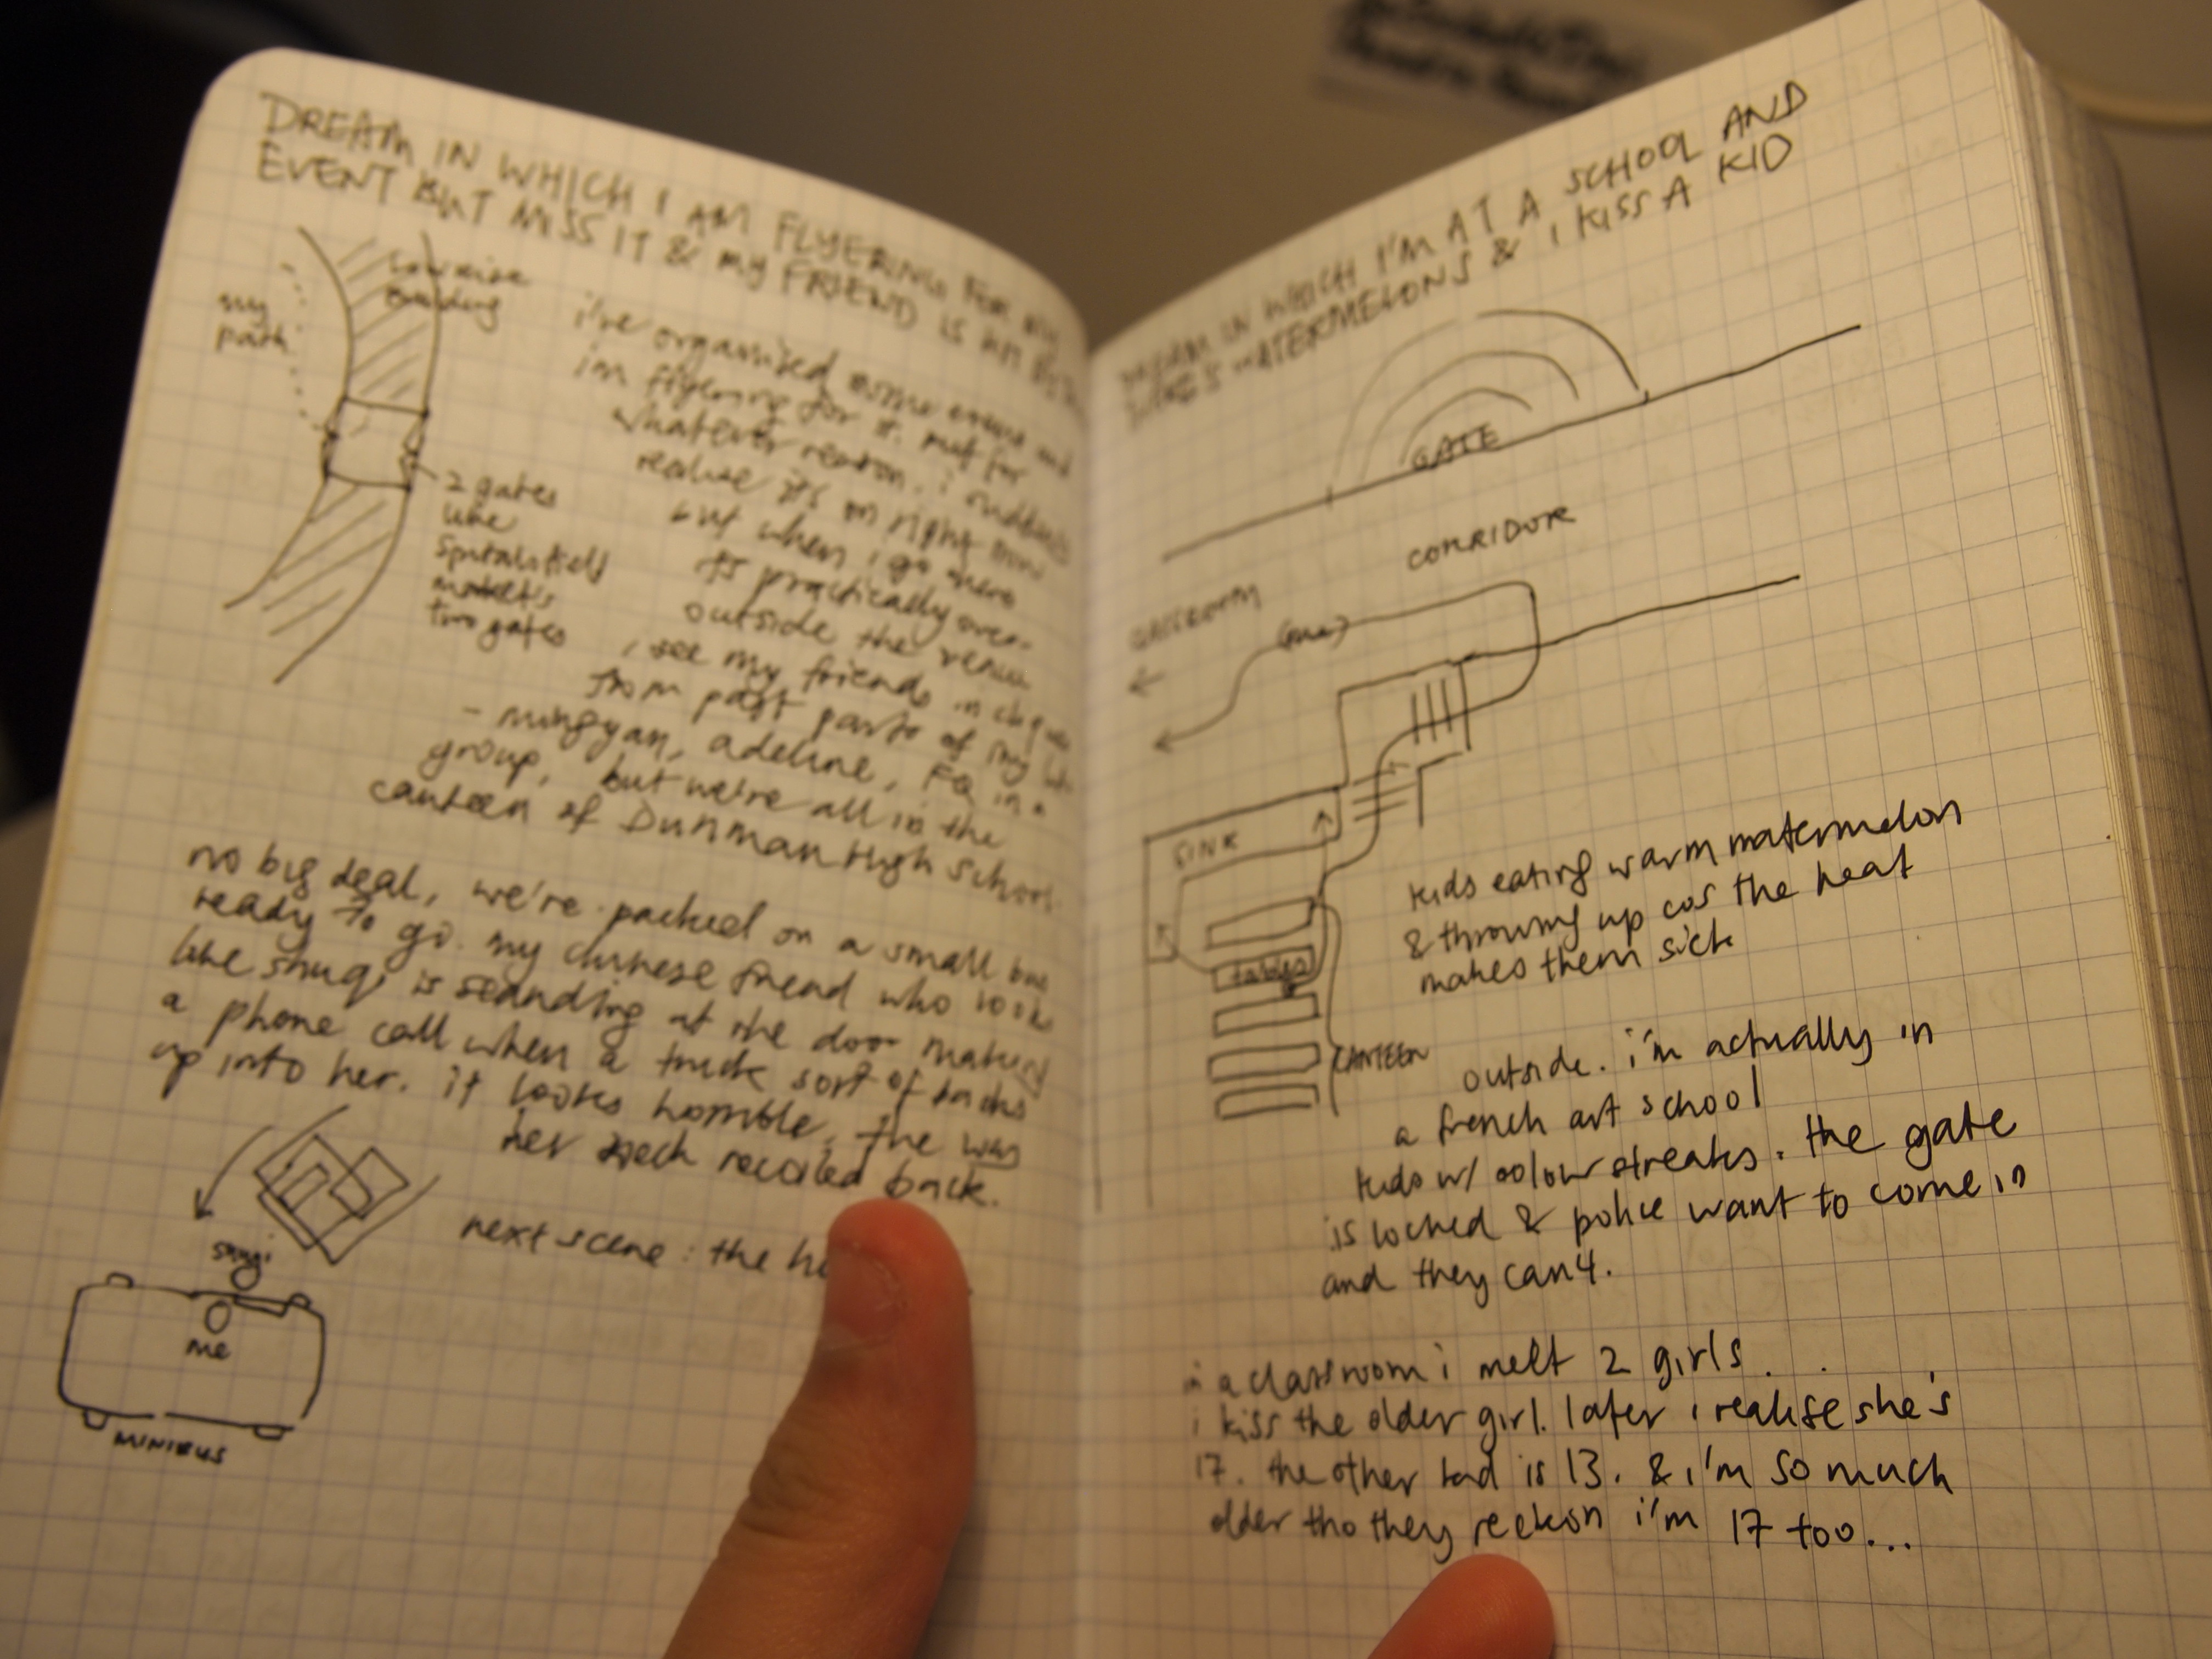 DREAM IN WHICH I AM FLYERING FOR AN
EVENT BUT MISS IT & MY FRIEND IS
my
path
building
i've organised some event and
i'm flyering for it. but for
whatever reason. i suddenly
realise it's on right now
but when i go there
it's practically over.
outside the venue
i see my friends in
from past parts of my life
- mingyan, adeline, FQ in a
group, but we're all in the
canteen of Dunman High School.
2 gates
like
spitalsfield
market's
two gates
no big deal, we're packed on a small bus
ready to go. my chinese friend who looks
like shuqi is standing at the door making
a phone call when a truck sort of backs
up into her. it looks horrible, the way
her neck recoiled back.
shuqi
me
MINIBUS
next scene: the
DREAM IN WHICH I'M AT A SCHOOL AND
WATERMELONS & I KISS A KID
GATE
CORRIDOR
CLASSROOM
(me)
SINK
tables
CANTEEN
kids eating warm watermelon
& throwing up cos the heat
makes them sick
outside. i'm actually in
a french art school
kids w/ colour streaks. the gate
is locked & police want to come in
and they can4.
in a classroom i melt 2 girls.
i kiss the older girl. later i realise she's
17. the other kid is 13. & i'm so much
older tho they reckon i'm 17 too...